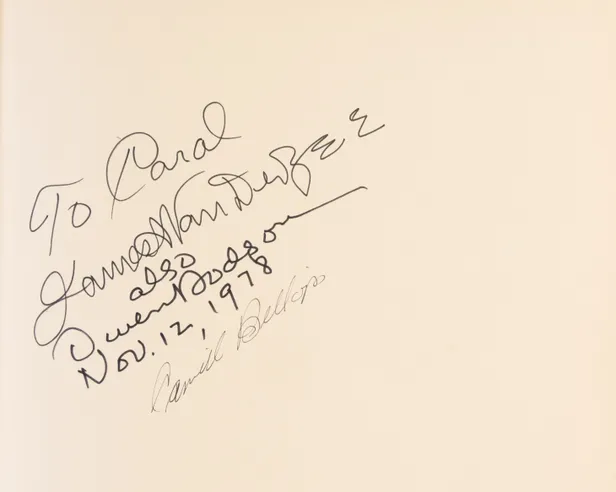 To Carol
James VanDerZee
also
Owen Dodson
Nov. 12, 1978
Camille Billops